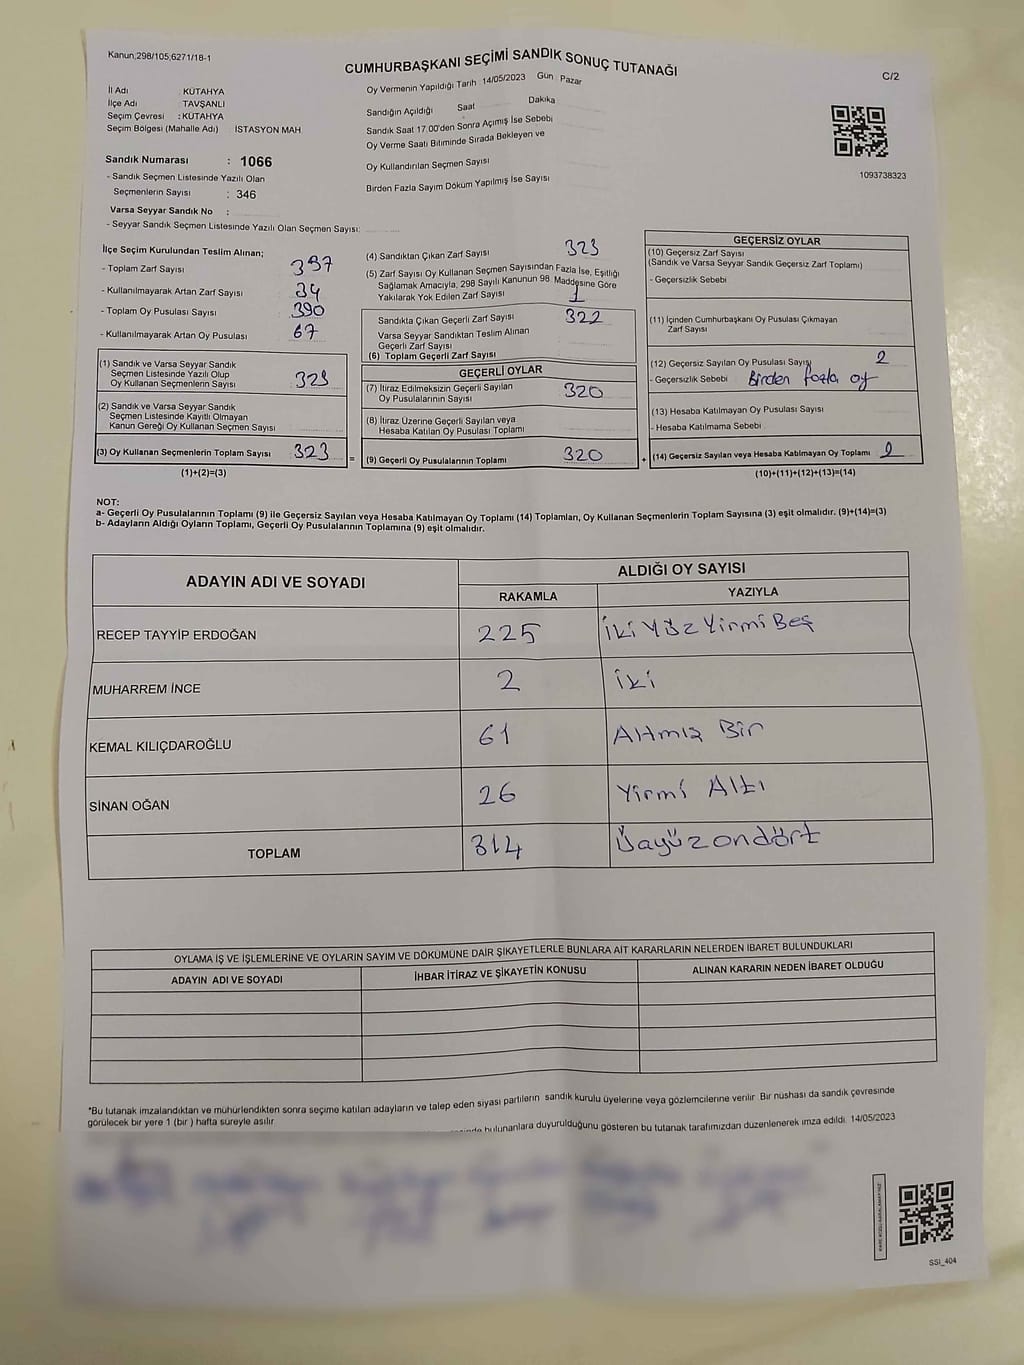 Kanun;298/105;6271/18-1
CUMHURBAŞKANI SEÇİMİ SANDIK SONUÇ TUTANAĞI
C/2
İl Adı : KÜTAHYA
İlçe Adı : TAVŞANLI
Seçim Çevresi : KÜTAHYA
Seçim Bölgesi (Mahalle Adı) : İSTASYON MAH
Sandık Numarası : 1066
- Sandık Seçmen Listesinde Yazılı Olan
Seçmenlerin Sayısı : 346
Varsa Seyyar Sandık No :
- Seyyar Sandık Seçmen Listesinde Yazılı Olan Seçmen Sayısı:
Oy Vermenin Yapıldığı Tarih :14/05/2023 Gün : Pazar
Sandığın Açıldığı Saat Dakika
Sandık Saat 17.00'den Sonra Açımış İse Sebebi
Oy Verme Saati Bitiminde Sırada Bekleyen ve
Oy Kullandırılan Seçmen Sayısı
Birden Fazla Sayım Döküm Yapılmış İse Sayısı
1093738323
İlçe Seçim Kurulundan Teslim Alınan;
- Toplam Zarf Sayısı 397
- Kullanılmayarak Artan Zarf Sayısı 34
- Toplam Oy Pusulası Sayısı 390
- Kullanılmayarak Artan Oy Pusulası 67
(1) Sandık ve Varsa Seyyar Sandık
Seçmen Listesinde Yazılı Olup
Oy Kullanan Seçmenlerin Sayısı 323
(2) Sandık ve Varsa Seyyar Sandık
Seçmen Listesinde Kayıtlı Olmayan
Kanun Gereği Oy Kullanan Seçmen Sayısı
(3) Oy Kullanan Seçmenlerin Toplam Sayısı 323
(1)+(2)=(3)
(4) Sandıktan Çıkan Zarf Sayısı 323
(5) Zarf Sayısı Oy Kullanan Seçmen Sayısından Fazla İse, Eşitliği
Sağlamak Amacıyla, 298 Sayılı Kanunun 98. Maddesine Göre
Yakılarak Yok Edilen Zarf Sayısı 1
Sandıkta Çıkan Geçerli Zarf Sayısı 322
Varsa Seyyar Sandıktan Teslim Alınan
Geçerli Zarf Sayısı
(6) Toplam Geçerli Zarf Sayısı
GEÇERLİ OYLAR
(7) İtiraz Edilmeksizin Geçerli Sayılan
Oy Pusulalarının Sayısı 320
(8) İtiraz Üzerine Geçerli Sayılan veya
Hesaba Katılan Oy Pusulası Toplamı
= (9) Geçerli Oy Pusulalarının Toplamı 320
GEÇERSİZ OYLAR
(10) Geçersiz Zarf Sayısı
(Sandık ve Varsa Seyyar Sandık Geçersiz Zarf Toplamı)
- Geçersizlik Sebebi
(11) İçinden Cumhurbaşkanı Oy Pusulası Çıkmayan
Zarf Sayısı
(12) Geçersiz Sayılan Oy Pusulası Sayısı 2
- Geçersizlik Sebebi Birden fazla oy
(13) Hesaba Katılmayan Oy Pusulası Sayısı
- Hesaba Katılmama Sebebi
+ (14) Geçersiz Sayılan veya Hesaba Katılmayan Oy Toplamı 2
(10)+(11)+(12)+(13)=(14)
NOT:
a- Geçerli Oy Pusulalarının Toplamı (9) ile Geçersiz Sayılan veya Hesaba Katılmayan Oy Toplamı (14) Toplamları, Oy Kullanan Seçmenlerin Toplam Sayısına (3) eşit olmalıdır. (9)+(14)=(3)
b- Adayların Aldığı Oyların Toplamı, Geçerli Oy Pusulalarının Toplamına (9) eşit olmalıdır.
ADAYIN ADI VE SOYADI ALDIĞI OY SAYISI
RAKAMLA YAZIYLA
RECEP TAYYİP ERDOĞAN 225 İki Yüz Yirmi Beş
MUHARREM İNCE 2 İki
KEMAL KILIÇDAROĞLU 61 Altmış Bir
SİNAN OĞAN 26 Yirmi Altı
TOPLAM 314 Üçyüzondört
OYLAMA İŞ VE İŞLEMLERİNE VE OYLARIN SAYIM VE DÖKÜMÜNE DAİR ŞİKAYETLERLE BUNLARA AİT KARARLARIN NELERDEN İBARET BULUNDUKLARI
ADAYIN ADI VE SOYADI İHBAR İTİRAZ VE ŞİKAYETİN KONUSU ALINAN KARARIN NEDEN İBARET OLDUĞU
*Bu tutanak imzalandıktan ve mühürlendikten sonra seçime katılan adayların ve talep eden siyasi partilerin sandık kurulu üyelerine veya gözlemcilerine verilir. Bir nüshası da sandık çevresinde
görülecek bir yere 1 (bir ) hafta süreyle asılır.
bulunanlara duyurulduğunu gösteren bu tutanak tarafımızdan düzenlenerek imza edildi. 14/05/2023
SSI_404